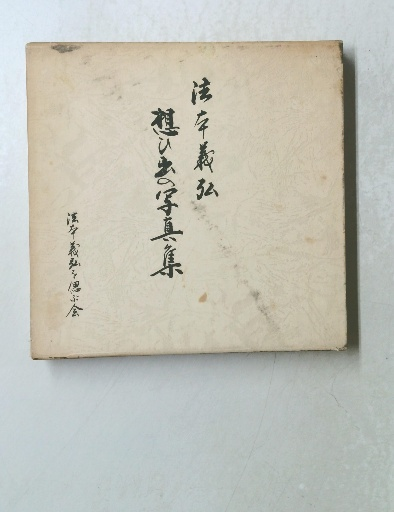 法本義弘
想ひ出の写真集
法本義弘を偲ぶ会